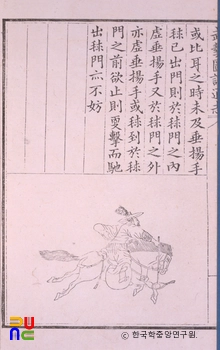 或比耳之時未及垂揚手
毬已出門則於毬門之內
虛垂揚手又於毬門之外
亦虛垂揚手或毬到於毬
門之前欲止則更擊而馳
出毬門亦不妨
© 한국학중앙연구원.